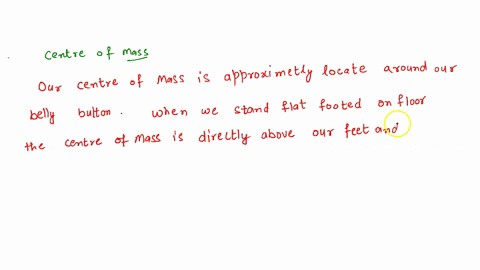 Centre of mass
Our centre of mass is approximetly locate around our
belly button. When we stand flat footed on floor
the centre of mass is directly above our feet and